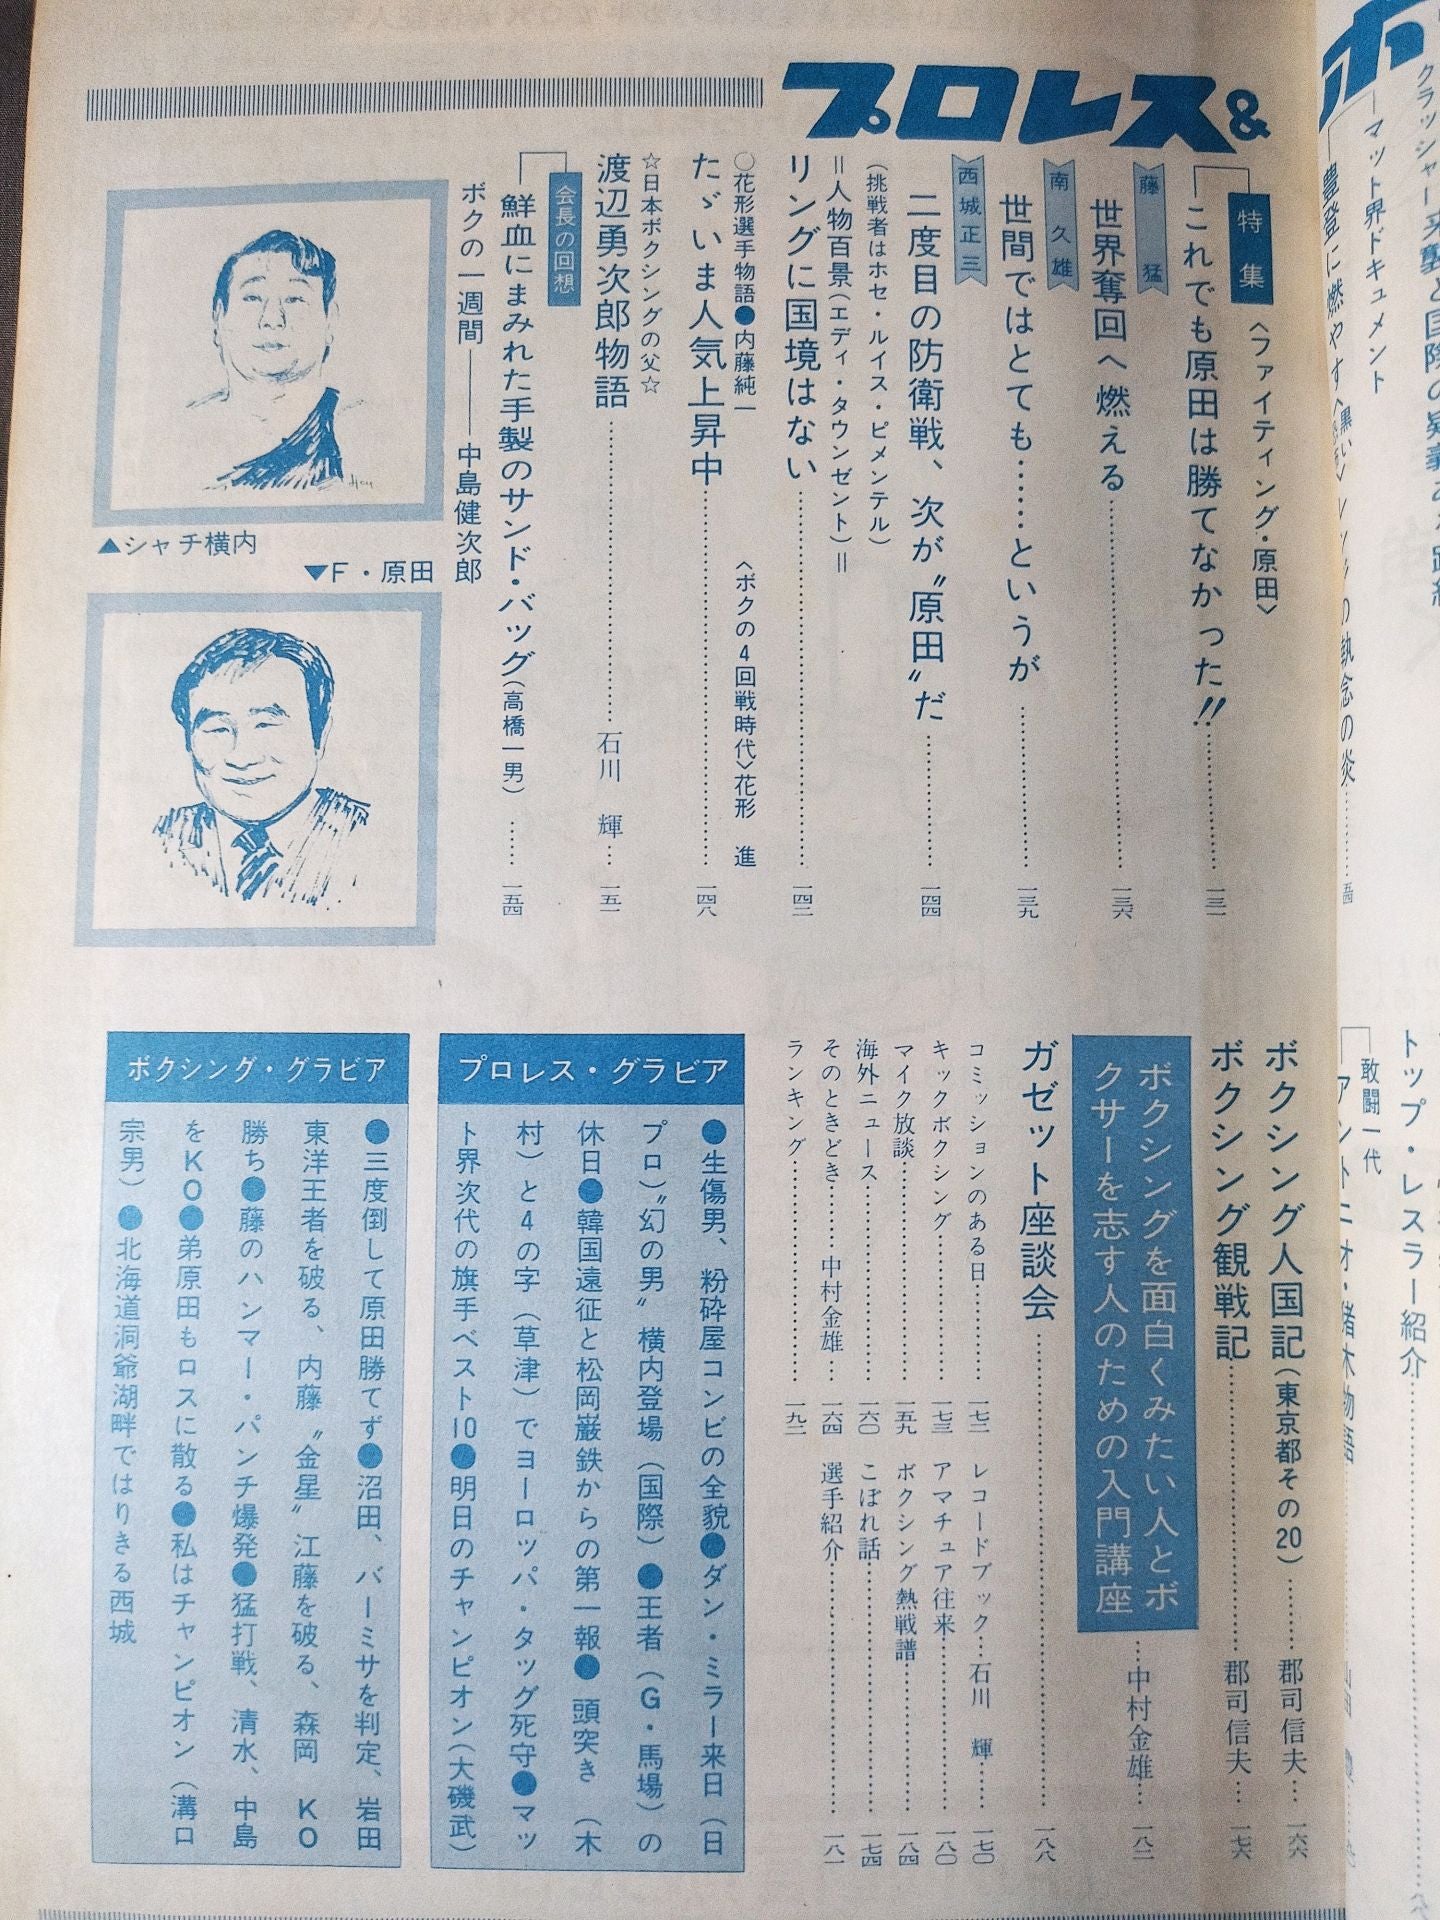 プロレス&
特集
〈ファイティング・原田〉
これでも原田は勝てなかった!!……一三一
藤 猛
世界奪回へ燃える……一三六
南 久雄
世間ではとても……というが……一三九
西城正三
二度目の防衛戦、次が〝原田〟だ……一四四
(挑戦者はホセ・ルイス・ピメンテル)
=人物百景(エディ・タウンゼント)=
リングに国境はない……一四二
○花形選手物語●内藤純一
〈ボクの4回戦時代〉花形 進
たゞいま人気上昇中……一四八
☆日本ボクシングの父☆
渡辺勇次郎物語……石川 輝…一五一
会長の回想
鮮血にまみれた手製のサンド・バッグ(高橋一男)……一五四
ボクの一週間――中島健次郎
▲シャチ横内
▼F・原田
ボクシング人国記(東京都その20)……郡司信夫…一六六
ボクシング観戦記……郡司信夫…一七六
ボクシングを面白くみたい人とボ
クサーを志す人のための入門講座
…中村金雄…一八二
ガゼット座談会……一八八
コミッションのある日……一七二
レコードブック…石川 輝……一七〇
キックボクシング……一七三
アマチュア往来……一八〇
マイク放談……一五九
ボクシング熱戦譜……一八四
海外ニュース……一六〇
こぼれ話……一七四
そのときどき……中村金雄…一六四
選手紹介……一八一
ランキング……一九二
プロレス・グラビア
●生傷男、粉砕屋コンビの全貌●ダン・ミラー来日(日
プロ)〝幻の男〟横内登場(国際)●王者(G・馬場)の
休日●韓国遠征と松岡巌鉄からの第一報●頭突き(木
村)と4の字(草津)でヨーロッパ・タッグ死守●マッ
ト界次代の旗手ベスト10●明日のチャンピオン(大磯武)
ボクシング・グラビア
●三度倒して原田勝てず●沼田、バーミサを判定、岩田
東洋王者を破る、内藤〝金星〟江藤を破る、森岡 KO
勝ち●藤のハンマー・パンチ爆発●猛打戦、清水、中島
をKO●弟原田もロスに散る●私はチャンピオン(溝口
宗男)●北海道洞爺湖畔ではりきる西城
マット界ドキュメント
トップ・レスラー紹介
敢闘一代